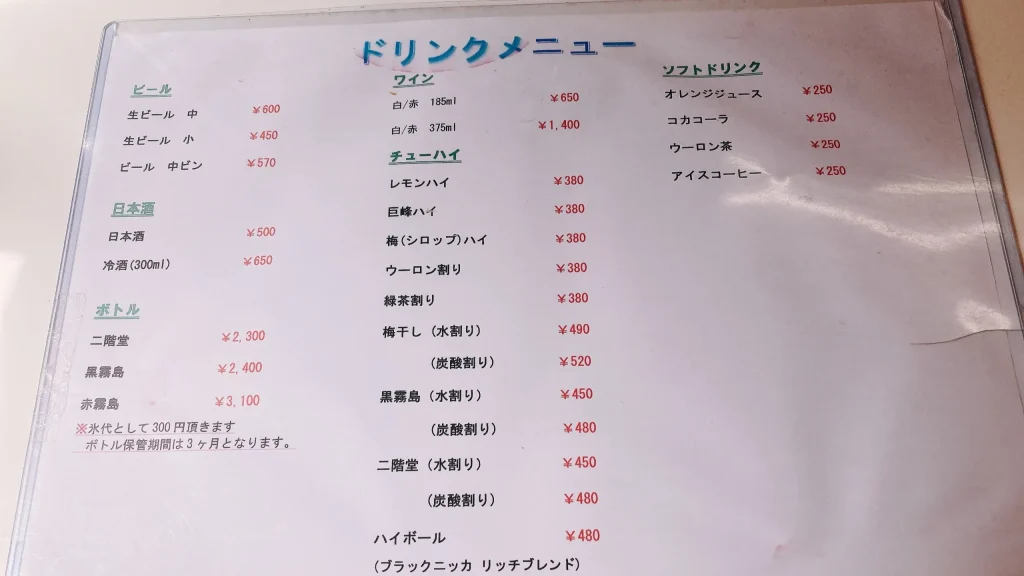 ドリンクメニュー
ビール
生ビール 中 ¥600
生ビール 小 ¥450
ビール 中ビン ¥570
日本酒
日本酒 ¥500
冷酒(300ml) ¥650
ボトル
二階堂 ¥2,300
黒霧島 ¥2,400
赤霧島 ¥3,100
※氷代として300円頂きます
ボトル保管期間は3ヶ月となります。
ワイン
白/赤 185ml ¥650
白/赤 375ml ¥1,400
チューハイ
レモンハイ ¥380
巨峰ハイ ¥380
梅(シロップ)ハイ ¥380
ウーロン割り ¥380
緑茶割り ¥380
梅干し (水割り) ¥490
(炭酸割り) ¥520
黒霧島 (水割り) ¥450
(炭酸割り) ¥480
二階堂 (水割り) ¥450
(炭酸割り) ¥480
ハイボール ¥480
(ブラックニッカ リッチブレンド)
ソフトドリンク
オレンジジュース ¥250
コカコーラ ¥250
ウーロン茶 ¥250
アイスコーヒー ¥250